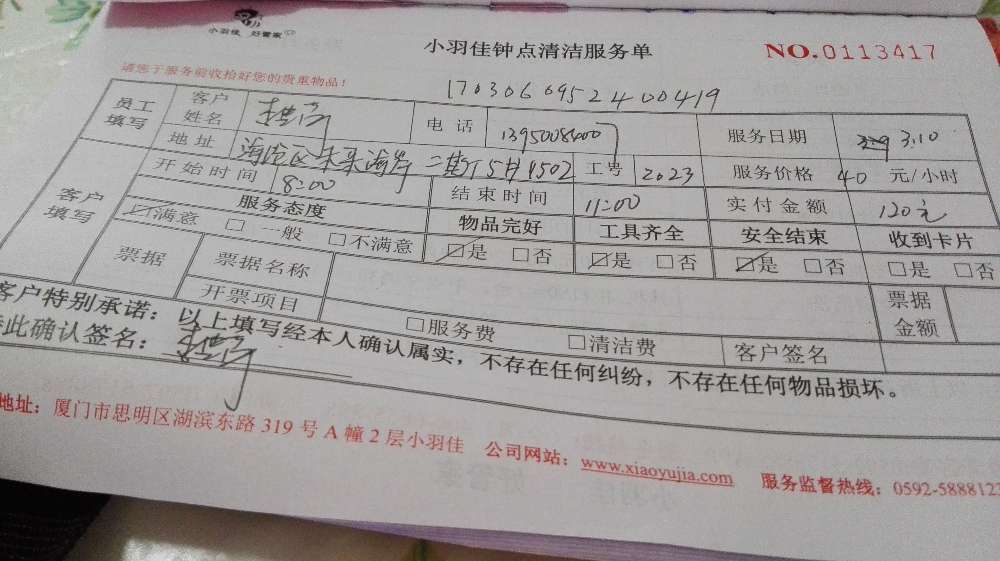 小羽佳 好管家
小羽佳钟点清洁服务单
NO.0113417
请您于服务前收拾好您的贵重物品！
1703060952400419
员工填写 客户姓名 电话 服务日期 3.10
地址 海沧区未来海岸 工号 2023 服务价格 40 元/小时
客户填写 开始时间 8:00 结束时间 11:00 实付金额 120元
服务态度 物品完好 工具齐全 安全结束 收到卡片
☑满意 □一般 □不满意 ☑是 □否 ☑是 □否 ☑是 □否 □是 □否
票据 票据名称 票据金额
开票项目 □服务费 □清洁费 客户签名
客户特别承诺：以上填写经本人确认属实，不存在任何纠纷，不存在任何物品损坏。
此确认签名：
地址：厦门市思明区湖滨东路 319 号 A 幢 2 层小羽佳 公司网站：www.xiaoyujia.com 服务监督热线：0592-588812